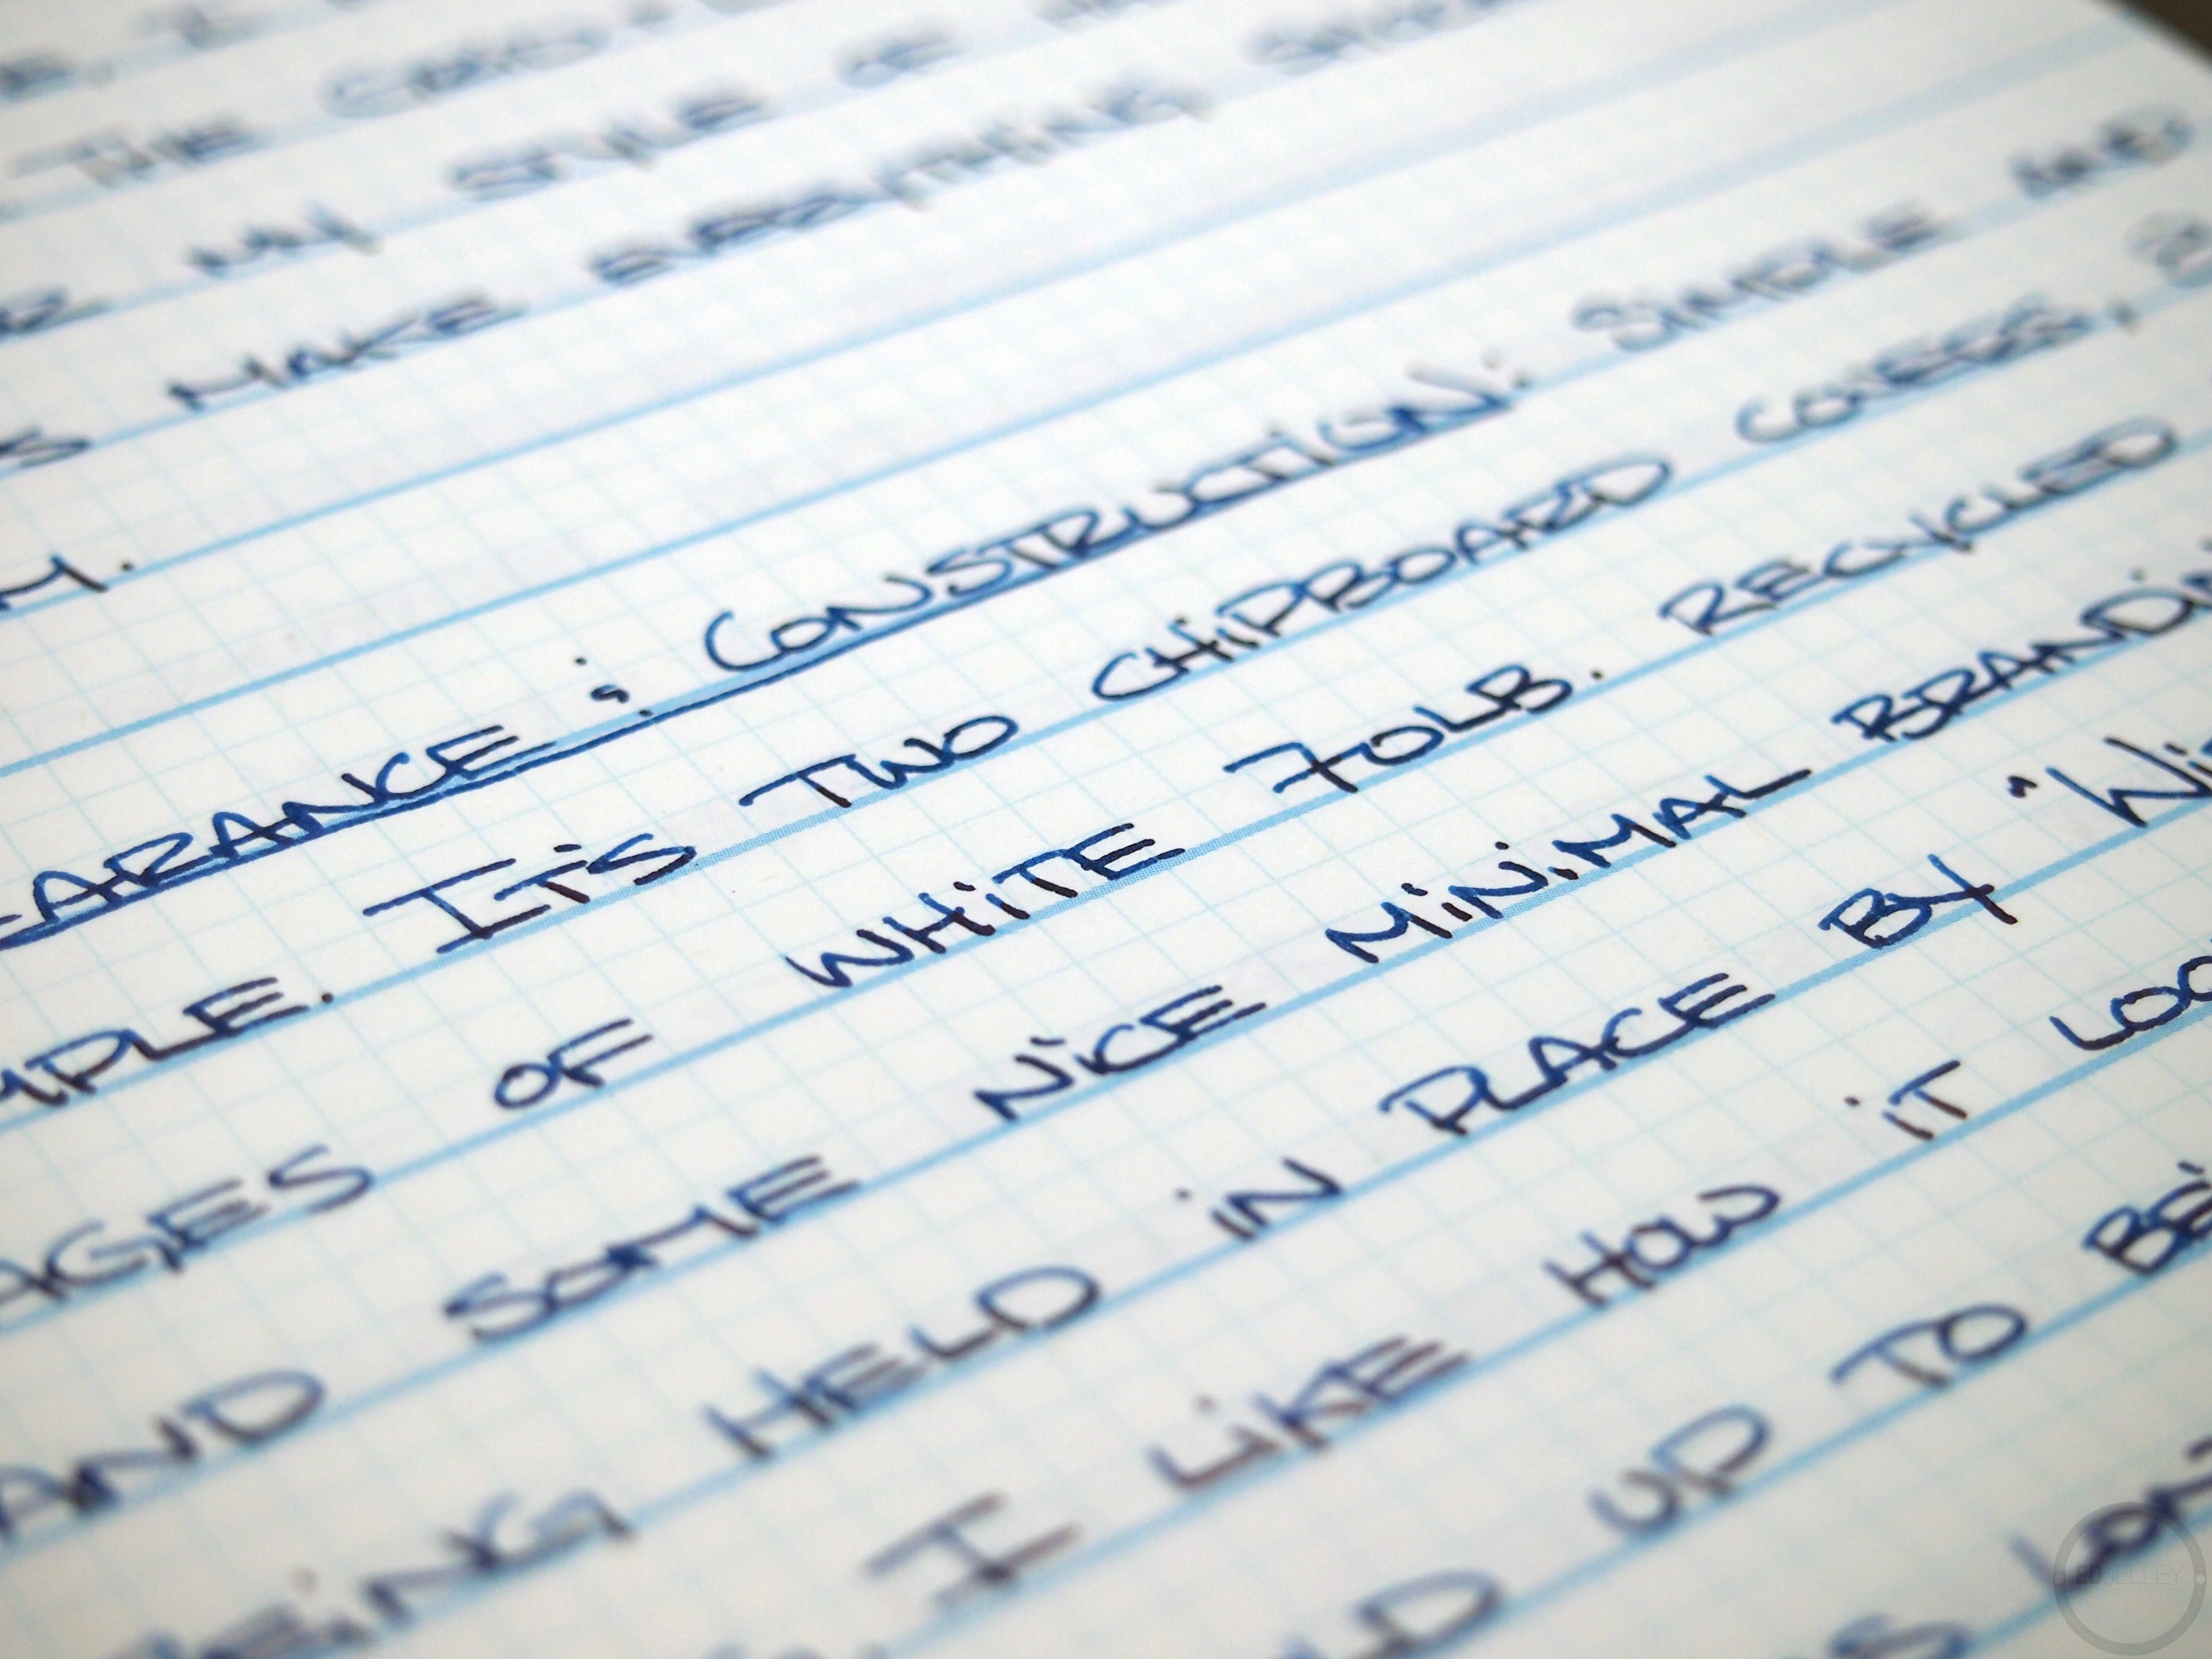 MY STYLE OF
S MAKE EVERYTHING
M.
EARANCE ; CONSTRUCTION: SIMPLE AND
MPLE. IT'S TWO CHIPBOARD COVERS,
AGES OF WHITE 70LB. RECYCLED
AND SOME NiCE MiNiMAL BRANDiN
BEiNG HELD iN PLACE BY "Wi
I LiKE HOW iT LOO
LD UP TO BE